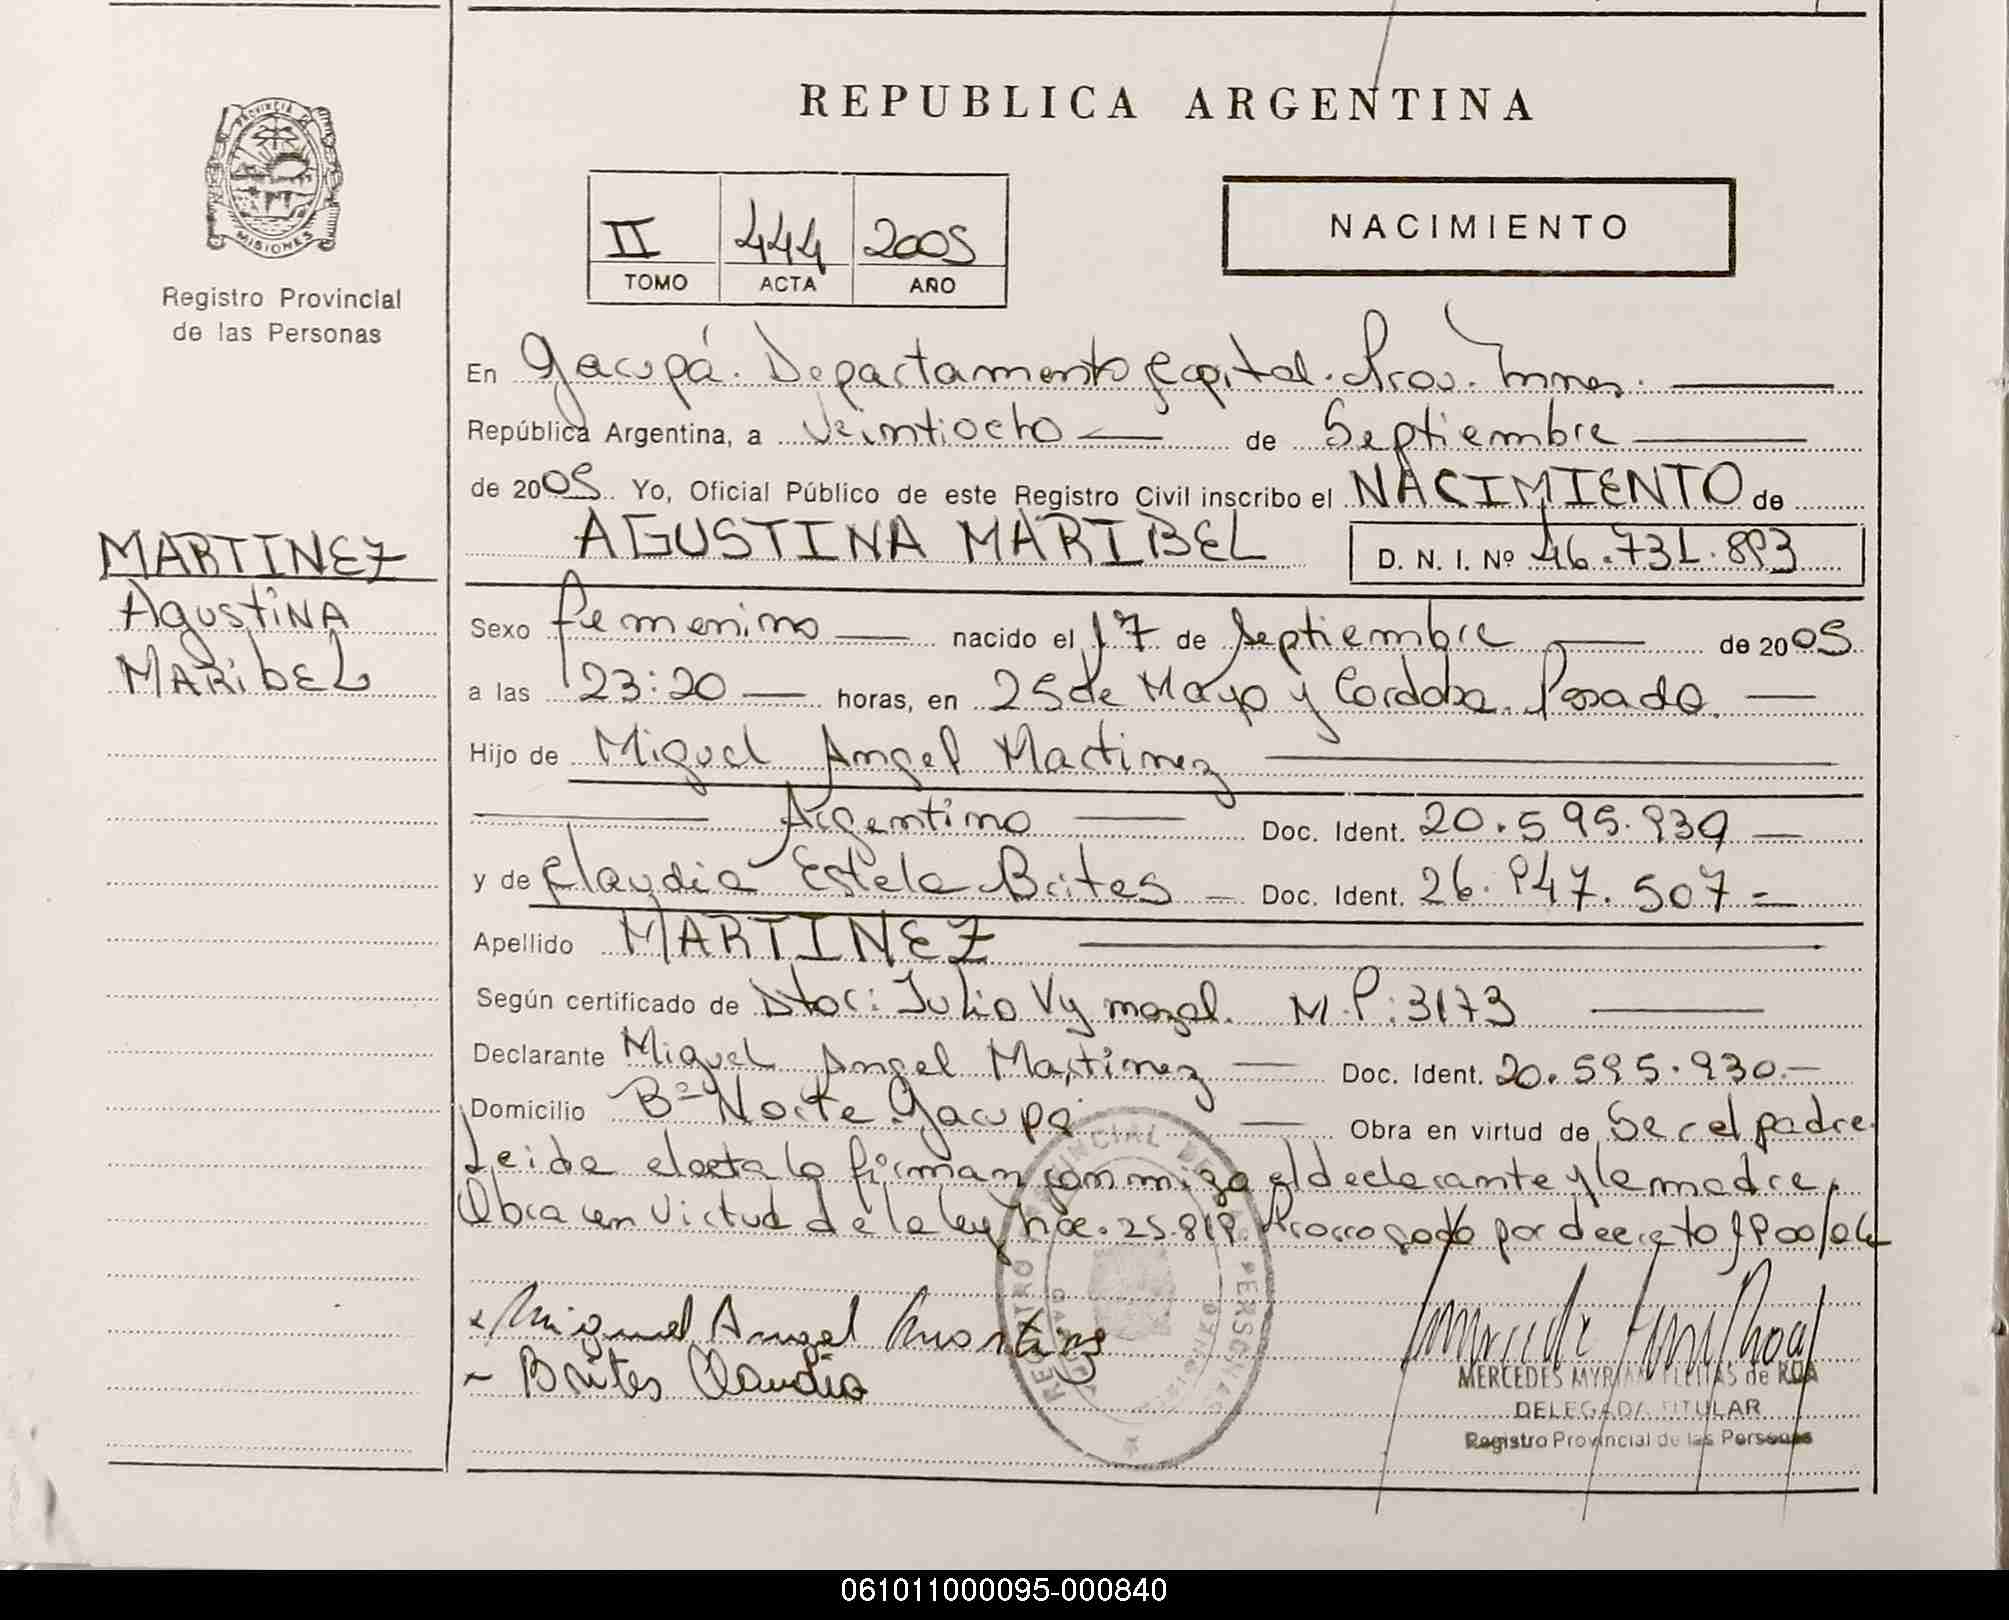 REPUBLICA ARGENTINA
PROVINCIA DE MISIONES
Registro Provincial
de las Personas
II 444 2005
TOMO ACTA AÑO
NACIMIENTO
En Garupá. Departamento Capital. Prov. Mnes.
República Argentina, a veintiocho de Septiembre
de 2005 Yo, Oficial Público de este Registro Civil inscribo el NACIMIENTO de
AGUSTINA MARIBEL D. N. I. Nº 46.731.893
MARTINEZ
Agustina
Maribel
Sexo femenino nacido el 17 de Septiembre de 2005
a las 23:20 horas, en 25 de Mayo y Cordoba. Posadas.
Hijo de Miguel Angel Martinez
Argentino Doc. Ident. 20.595.930
y de Claudia Estela Brites Doc. Ident. 26.947.507
Apellido MARTINEZ
Según certificado de Dtor: Julio Vymazal. M.P: 3173
Declarante Miguel Angel Martinez Doc. Ident. 20.595.930.
Domicilio Bº Norte Garupá Obra en virtud de Ser el padre.
Leida el acta la firman conmigo el declarante y la madre.
Obra en virtud de la ley nro. 25.819. Prorrogado por decreto 1900/04
Miguel Angel Martinez
Brites Claudia
REGISTRO PROVINCIAL DE LAS PERSONAS
MERCEDES MYRIAN FLEITAS de ROA
DELEGADA TITULAR
Registro Provincial de las Personas
061011000095-000840